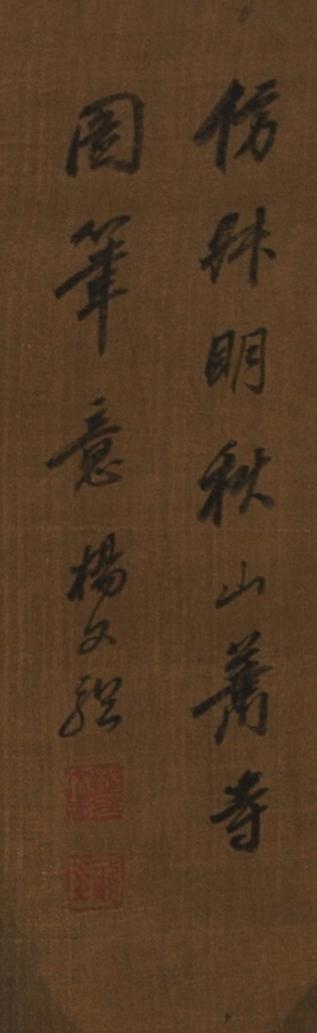 仿叔明秋山蕭寺
圖筆意楊文驄